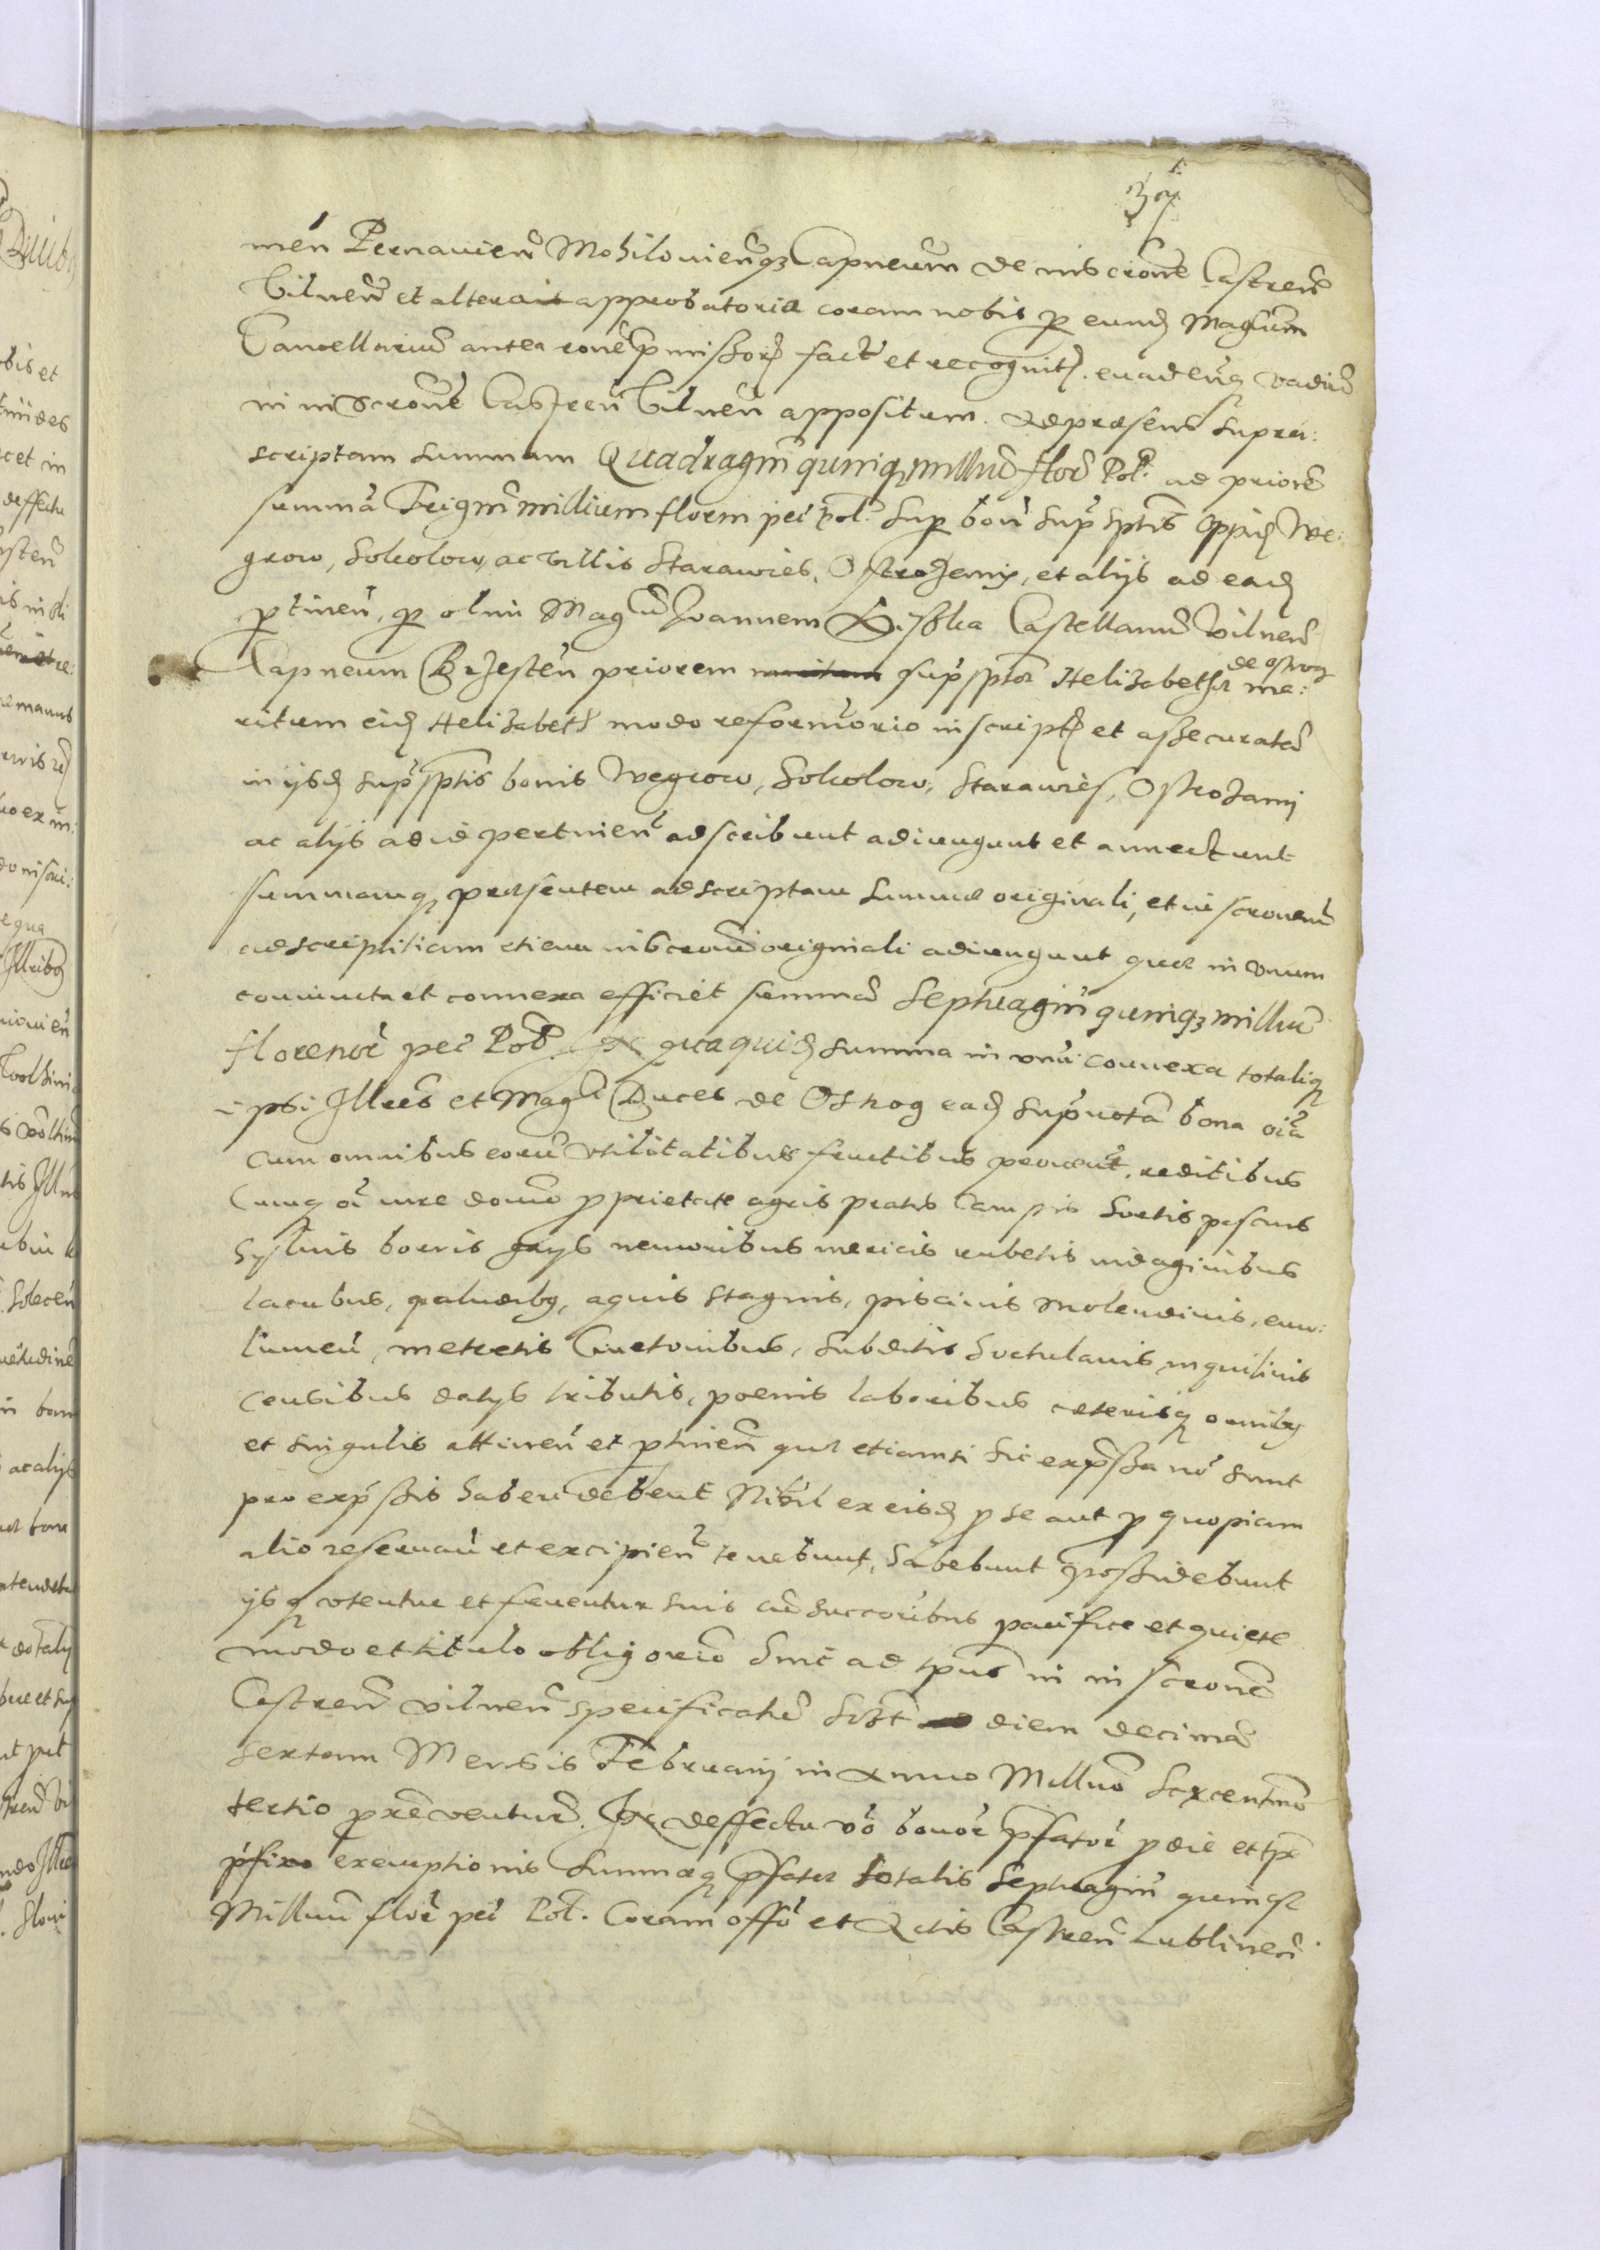 37
men Pernavien Mohilovienq Capneum de inscrone Castren
Vilnen et altera approbatoria coram nobis p eund Magcum
Cancellarium antea rone pmissor fact et recognit. evadenq vadiu
in inscrone Castren Vilnen appositum. Ad praesens supra:
scriptam summam Quadragin quinq milliu flor Pol. ad priore
summa Trigin millium florn pec Pol. sup bon supsptis oppid We:
grow, Sokolow, ac villis Starawies, Ostrozeny, et alijs ad ead
ptinen, p olim Magcu Joannem Kiszka Castellanu Vilnen
Capneum Brzesten priorem supsptae Helizabethae de Ostrog ma:
ritum eid Helizabeth modo reformorio inscript et assecurata
in ijsd supsptis bonis Wegrow, Sokolow, Starawies, Ostrozany
ac alijs ad id pertinen adscribunt adiungunt et annectunt
summamq praesentem adscriptam summae originali, et inscronem
adscriptitiam etiam inscroni originali adiungunt quae in unum
coniuncta et connexa efficiet summa Septuagin quinq milliu
florenor pec Pol. In qua quid summa in unu connexa totaliq
ipsi Illres et Magci Duces de Ostrog ead supnota bona oia
cum omnibus eoru utilitatibus fructibus provent, reditibus
Cumq oi iure domo pprietate agris pratis campis hortis pascuis
Sylvis boris gays nemoribus mericis rubetis indaginibus
lacubus, paludibq, aquis stagnis, piscinis molendinis, emo:
lumen, metretis Cmetonibus, subditis hortulanis inquilinis
censibus datijs tributis, poenis laboribus caeterisq omnibq
et singulis attinen et ptinen quae etiamsi hic expssa no sunt
pro expssis haberi debent Nihil ex eisd p se aut p quopiam
alio reservan et excipien tenebunt, habebunt possidebunt
ijsq utentur et fruentur suis cu succoribus pacifice et quiete
modo et titulo obligorio hinc ad tpus in inscrone
Castren Vilnen specificatu scilicet diem decima
sextam Mensis Februarij in Anno Millmo Sexcentmo
tertio pxe ventur. In deffectu vo bonor pfator p die et tpe
pfixo exemptionis summaeq pfatae totalis Septuagin quinq
Millium flor pec Pol. Coram offo et Actis Castren Lublinen